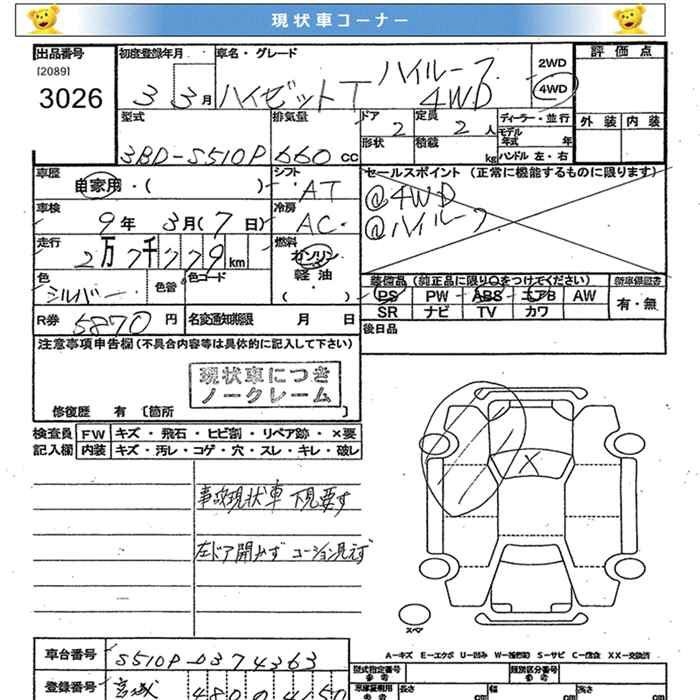 現状車コーナー
出品番号
[2089]
3026
初度登録年月
3 3月
車名・グレード
ハイゼットT ハイルーフ 4WD
2WD
4WD
評価点
外装 内装
型式
3BD-S510P
排気量
660 cc
ドア
2
定員
2 人
形状
積載
kg
ディーラー・並行
モデル年式 年
ハンドル 左・右
車歴
自家用・( )
シフト
AT
セールスポイント (正常に機能するものに限ります)
@4WD
@ハイルーフ
車検
9年 3月(7日)
冷房
AC
走行
2万7千779km
燃料
ガソリン
軽油
( )
色
シルバー
色替
色コード
装備品 (純正品に限り○をつけてください)
PS PW ABS エアB AW
SR ナビ TV カワ
新車保証書
有・無
R券 5870 円
名変通知期限 月 日
後日品
注意事項申告欄 (不具合内容等は具体的に記入して下さい)
現状車につき
ノークレーム
修復歴 有 [箇所 ]
検査員記入欄
FW キズ・飛石・ヒビ割・リペア跡・×要
内装 キズ・汚レ・コゲ・穴・スレ・キレ・破レ
事故現状車 下見要す
左ドア開かず コーション見えず
X
スペア
A-キズ E-エクボ U-凹み W-補修跡 S-サビ C-腐食 XX-交換済
車台番号
S510P-0374363
型式指定番号
参考
類別区分番号
参考
登録番号
宮城 480
長さ
cm
幅
cm
高さ
cm